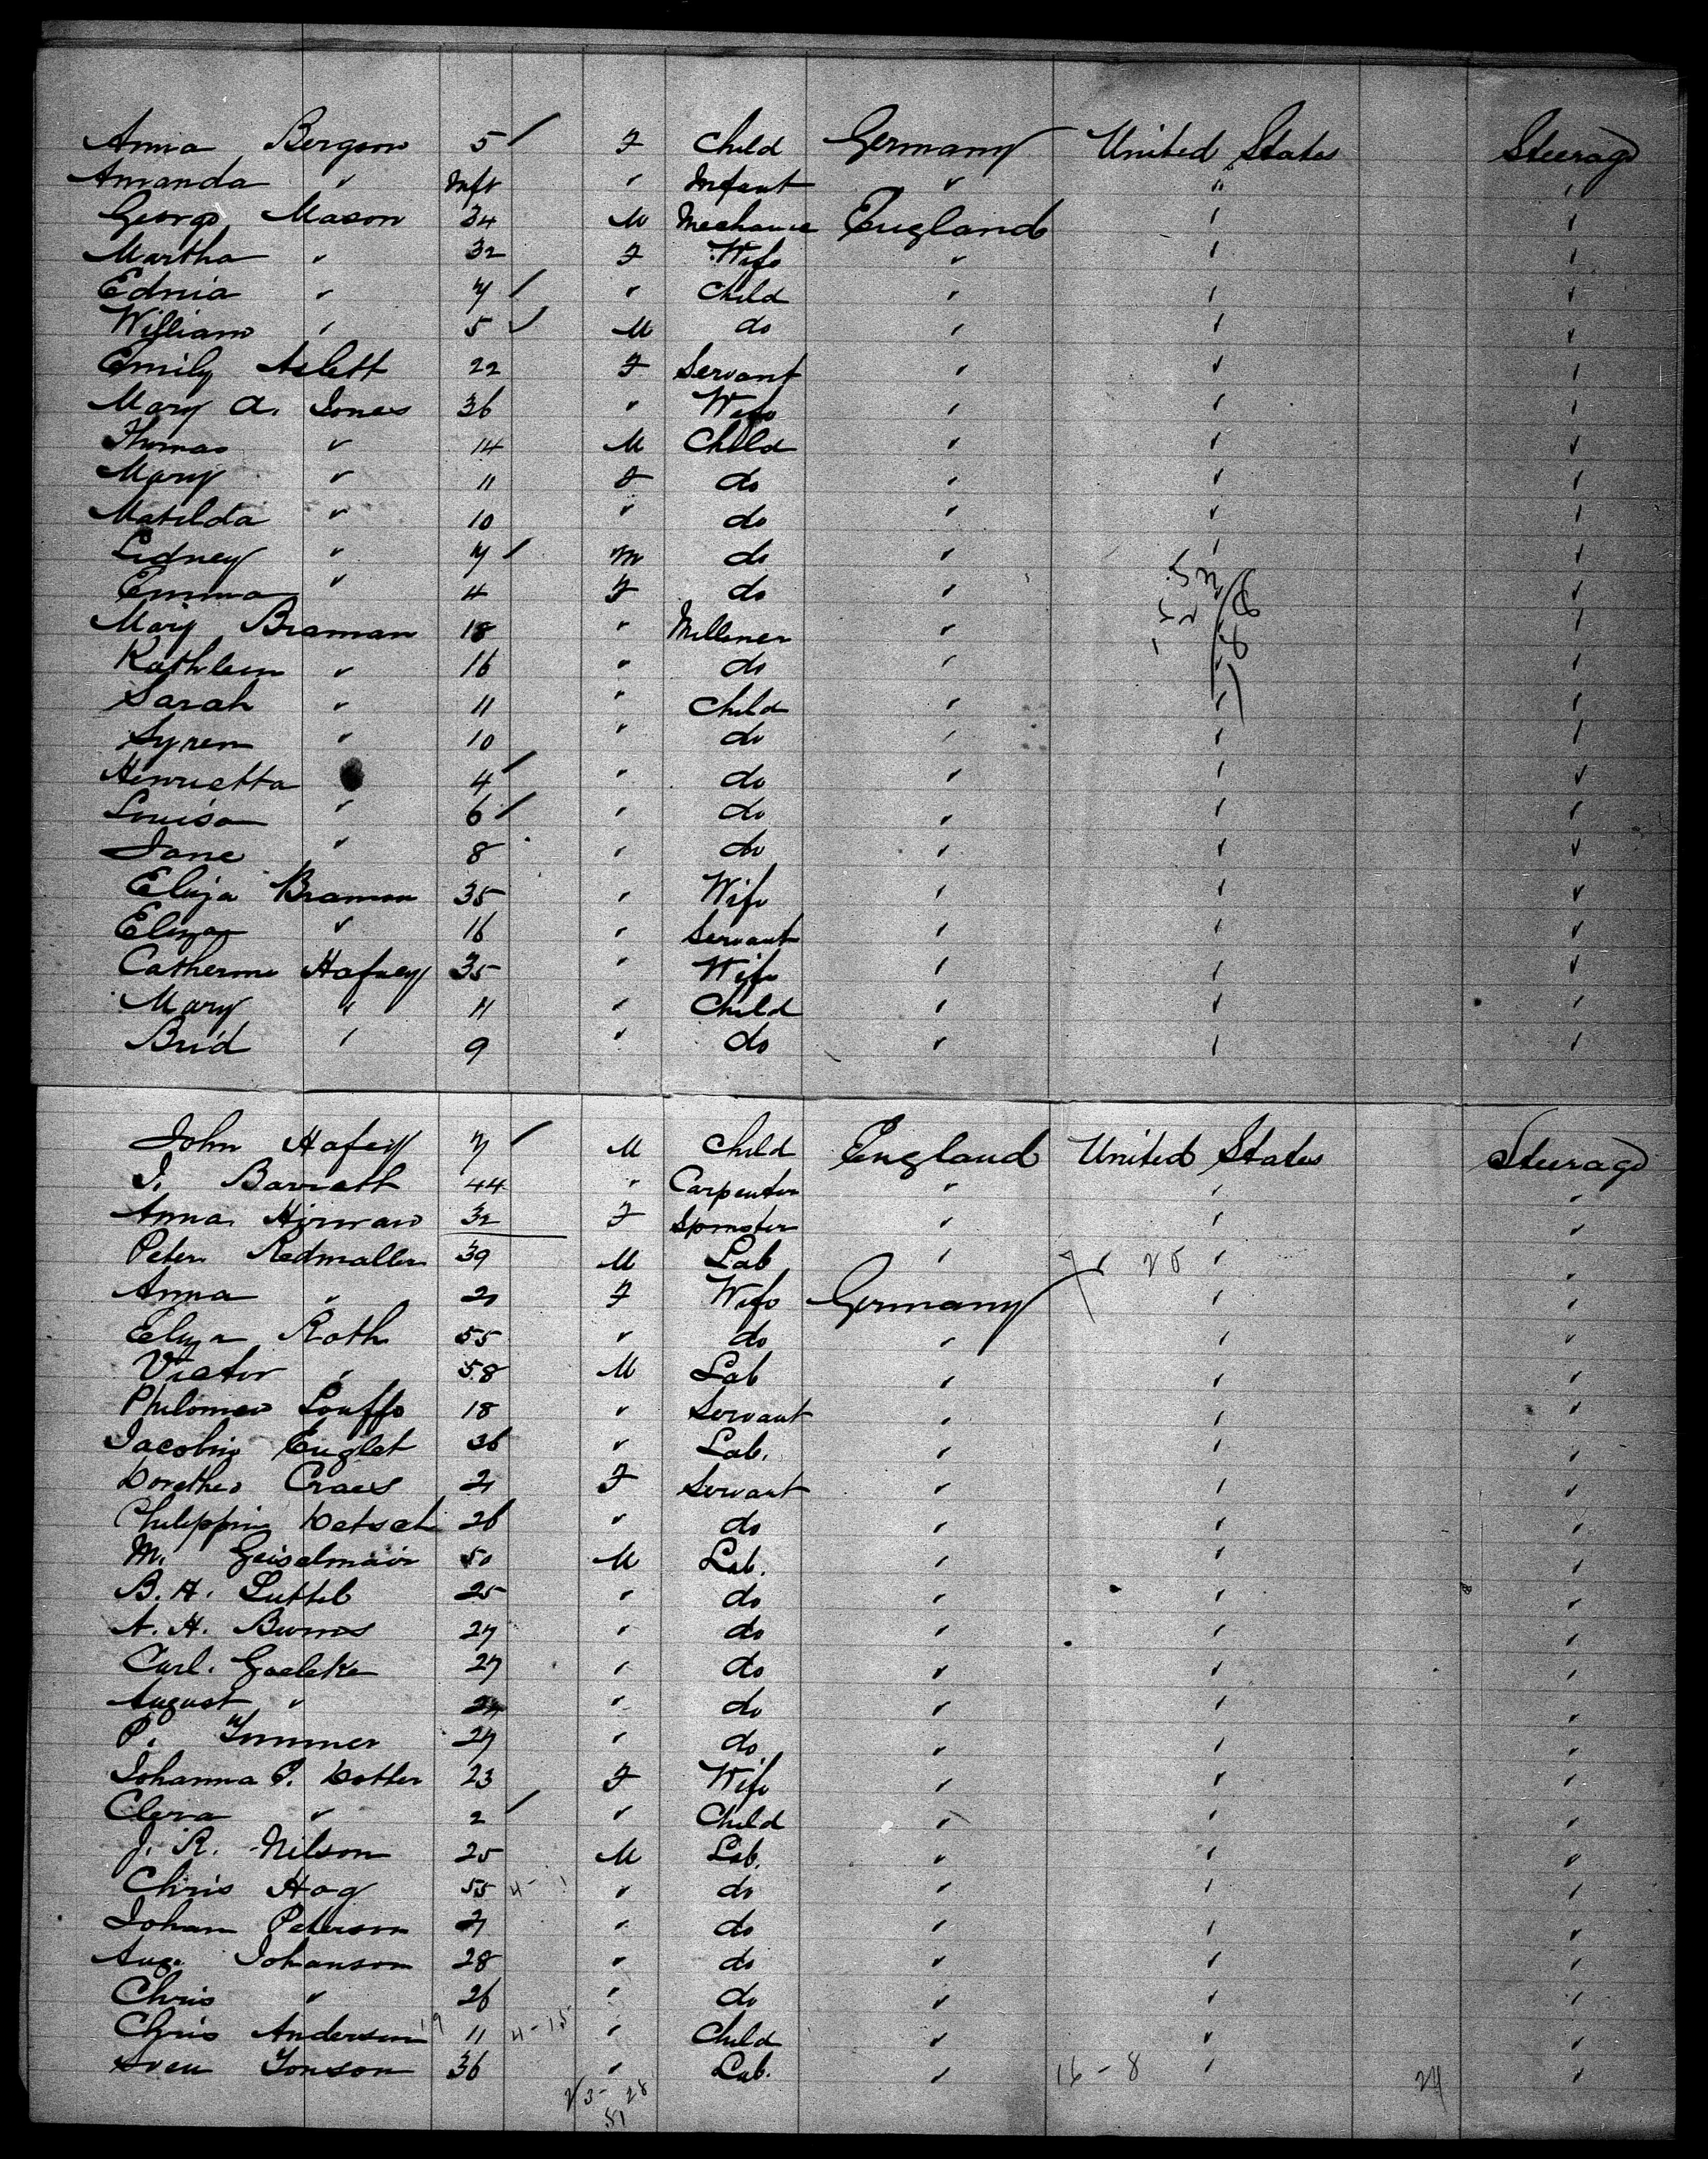 Anna Bergson 5 ✓ F Child Germany United States Steerage
Amanda " Inft " Infant " " "
George Mason 34 M Mechanic England " "
Martha " 32 F Wife " " "
Ednia " 7 ✓ " Child " " "
William " 5 ✓ M do " " "
Emily Aslett 22 F Servant " " "
Mary A. Jones 36 " Wife " " "
Thomas " 14 M Child " " "
Mary " 11 F do " " "
Matilda " 10 " do " " "
Sidney " 7 ✓ M do " " "
Emma " 4 F do " " "
Mary Braman 18 " Milliner " " "
Kathleen " 16 " do " " "
Sarah " 11 " Child " " "
Syren " 10 " do " " "
Henrietta 4 ✓ " do " " "
Louisa " 6 ✓ " do " " "
Jane " 8 " do " " "
Eliza Braman 35 " Wife " " "
Eliza " 16 " Servant " " "
Catherine Hafney 35 " Wife " " "
Mary " 11 " Child " " "
Brid " 9 " do " " "
John Hafey 7 ✓ M Child England United States Steerage
J. Barratt 44 " Carpenter " " "
Anna 32 F Spinster " " "
Peter Redmaller 39 M Lab " " "
Anna " 21 F Wife Germany " "
Eliza Roth 55 " do " " "
Victor " 58 M Lab " " "
Philomen Louffs 18 " Servant " " "
Jacobin Englet 36 " Lab. " " "
Dorethea Craes 21 F Servant " " "
Philippin Detsch 26 " do " " "
M. Geiselmair 50 M Lab. " " "
B. H. Luttel 25 " do " " "
A. H. Burns 27 " do " " "
Carl. Goeleke 27 " do " " "
August " " do " " "
P. Yummer 27 " do " " "
Johanna P. Dotter 23 F Wife " " "
Clera " 2 ✓ " Child " " "
J. R. Nilson 25 M Lab. " " "
Chris Hog 55 " do " " "
Johan Peterson 27 " do " " "
Aug. Johanson 28 " do " " "
Chris " 26 " do " " "
Chris Anderson 11 4-15 " Child " " "
Sven Jonson 36 " Lab. " 16-8 " "